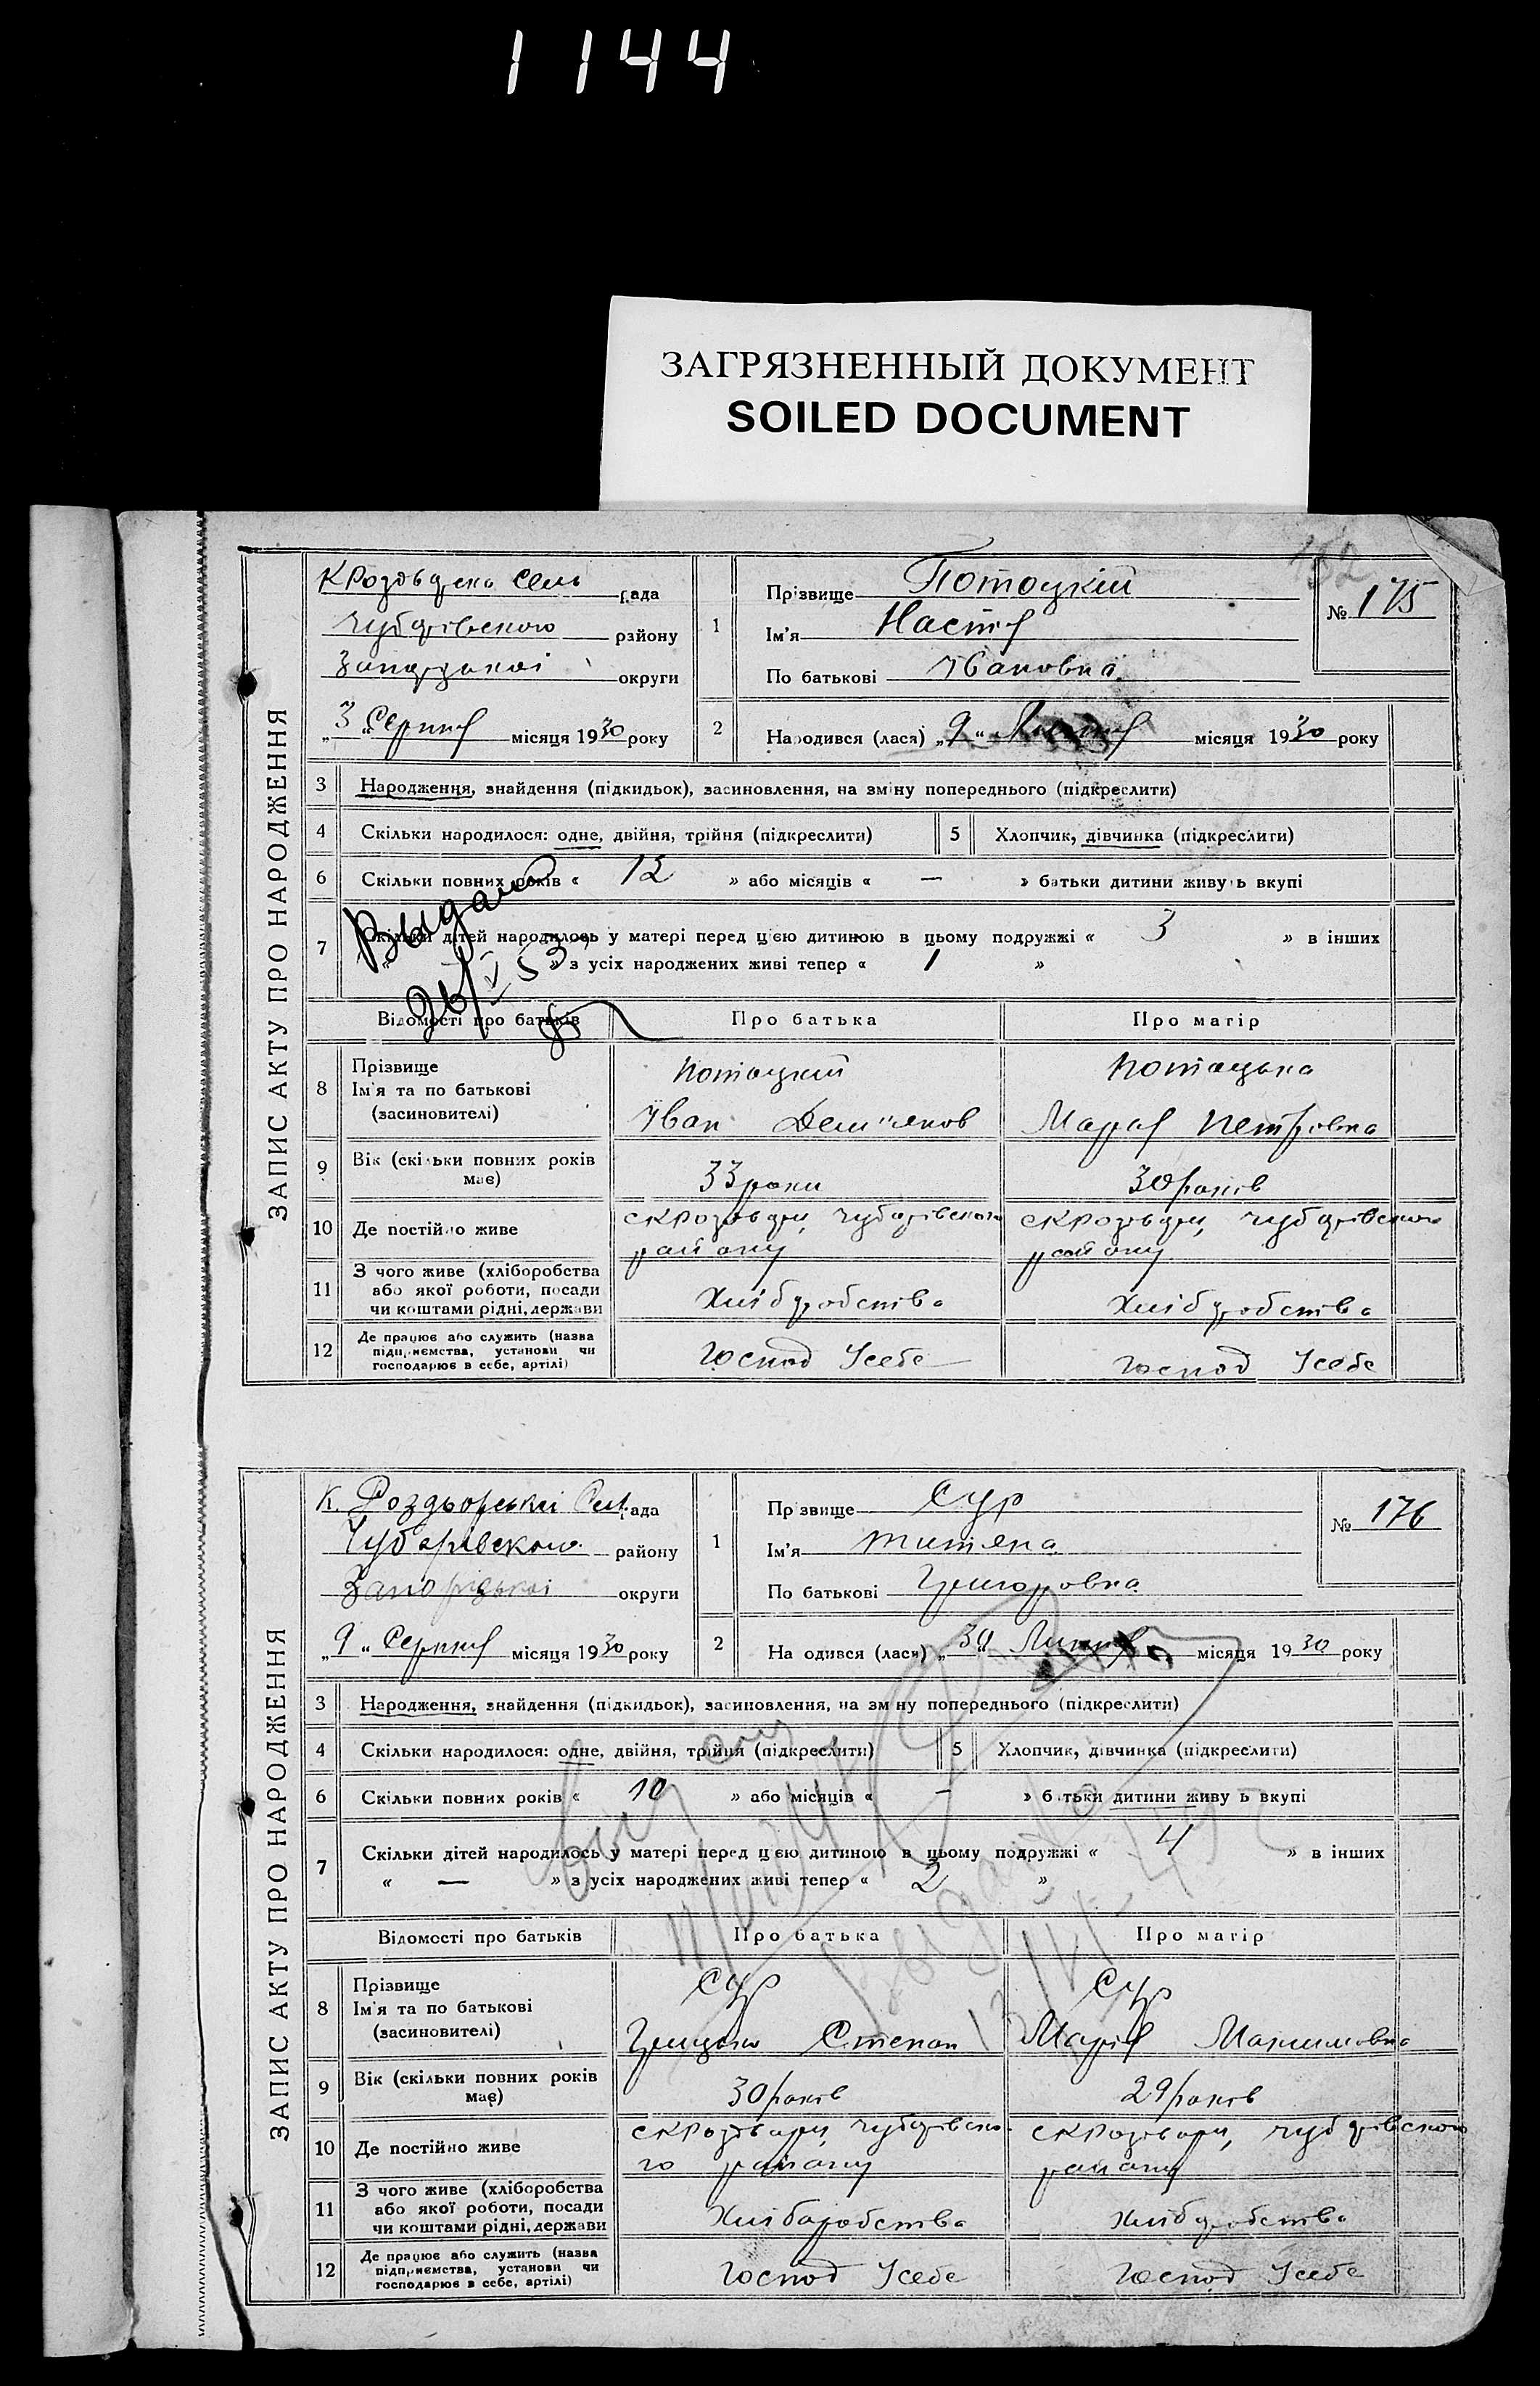 1144
ЗАГРЯЗНЕННЫЙ ДОКУМЕНТ
SOILED DOCUMENT
ЗАПИС АКТУ ПРО НАРОДЖЕННЯ
рада
району
округи
„3“ Серпня місяця 1930 року
1
Прізвище Потоцкій
Ім'я Настя
По батькові Ивановна
№ 175
2
Народився (лася) „9“ місяця 1930 року
3 Народження, знайдення (підкидьок), засиновлення, на зміну попереднього (підкреслити)
4 Скільки народилося: одне, двійня, трійня (підкреслити)
5 Хлопчик, дівчинка (підкреслити)
6 Скільки повних років « 12 » або місяців « — » батьки дитини живуть вкупі
7 Скільки дітей народилось у матері перед цією дитиною в цьому подружжі « 3 » в інших
« » з усіх народжених живі тепер « 1 »
Выдано
26/V 53
Відомості про батьків Про батька Про матір
8 Прізвище
Ім'я та по батькові
(засиновителі)
Потоцкий
Іван
Потоцька
Мария Петровна
9 Вік (скільки повних років
має)
33 роки
30 років
10 Де постійно живе
району
району
11 З чого живе (хліборобства
або якої роботи, посади
чи коштами рідні, держави
Хліборобства
Хліборобства
12 Де працює або служить (назва
підприємства, установи чи
господарює в себе, артілі)
Господ Усебе
Господ Усебе
ЗАПИС АКТУ ПРО НАРОДЖЕННЯ
К. Роздорської Сел. рада
Чубарівского району
Запоріzької округи
„9“ Серпня місяця 1930 року
1
Прізвище Сур
Ім'я Титяна
По батькові Григоровна
№ 176
2
Народився (лася) „30“ Липня місяця 1930 року
3 Народження, знайдення (підкидьок), засиновлення, на зміну попереднього (підкреслити)
4 Скільки народилося: одне, двійня, трійня (підкреслити)
5 Хлопчик, дівчинка (підкреслити)
6 Скільки повних років « 10 » або місяців « — » батьки дитини живуть вкупі
7 Скільки дітей народилось у матері перед цією дитиною в цьому подружжі « 4 » в інших
« — » з усіх народжених живі тепер « 2 »
Відомості про батьків Про батька Про матір
8 Прізвище
Ім'я та по батькові
(засиновителі)
Сур
Грицько Степан
Сур
Мария Макимовна
9 Вік (скільки повних років
має)
30 років
29 років
10 Де постійно живе
го району
району
11 З чого живе (хліборобства
або якої роботи, посади
чи коштами рідні, держави
Хліборобства
Хліборобства
12 Де працює або служить (назва
підприємства, установи чи
господарює в себе, артілі)
Господ Усебе
Господ Усебе